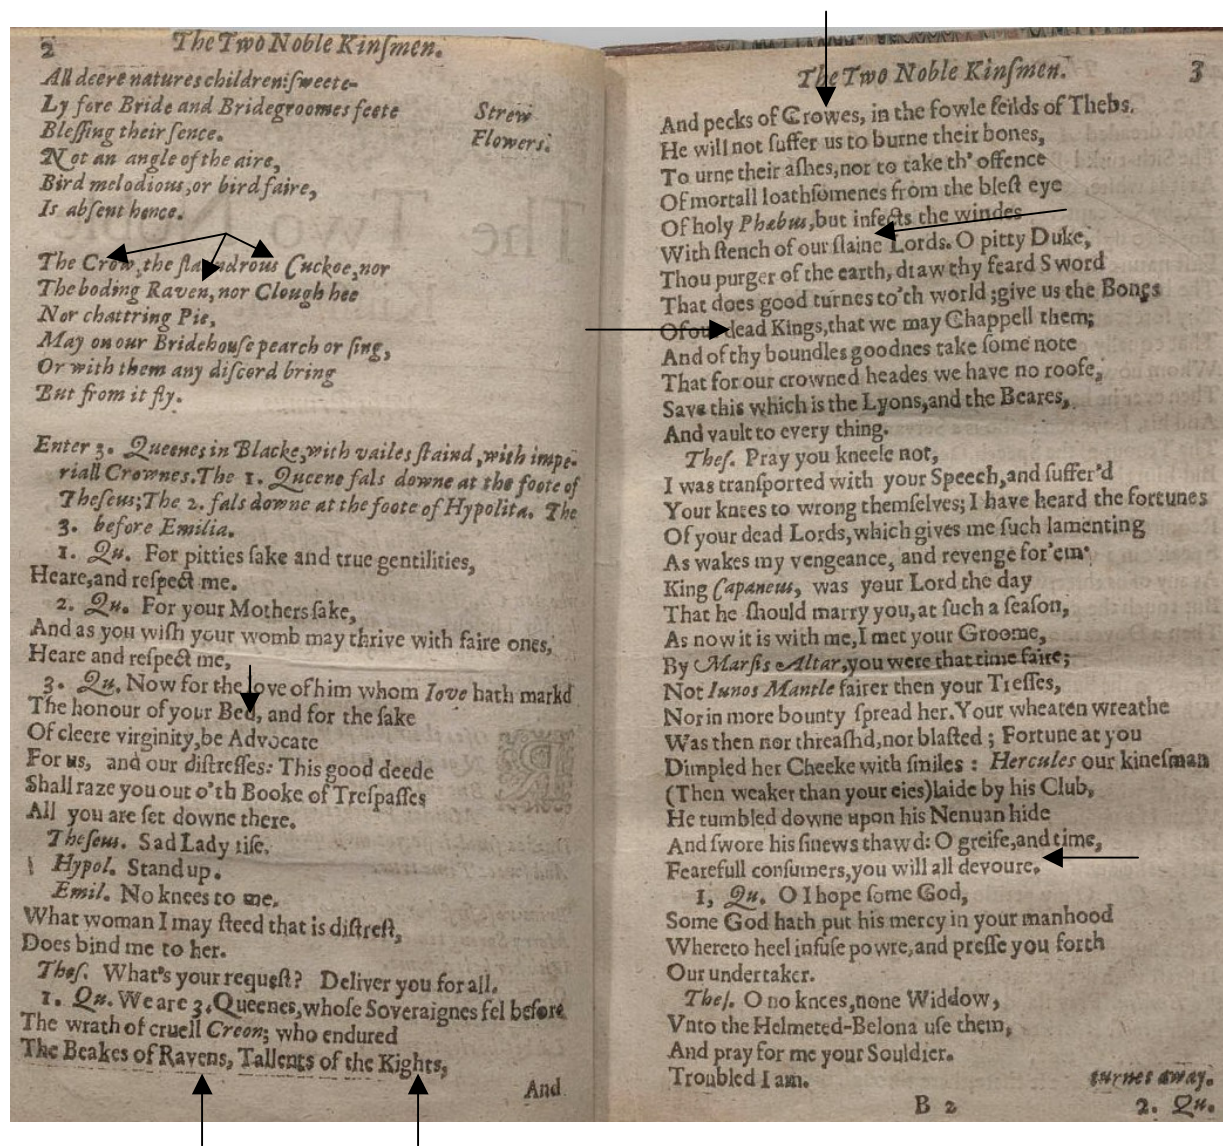 2 The Two Noble Kinſmen.
All deere natures children: ſweete-
Ly fore Bride and Bridegroomes feete Strew
Bleſſing their ſence. Flowers.
Not an angle of the aire,
Bird melodious, or bird faire,
Is abſent hence.
The Crow, the ſlaundrous Cuckoe, nor
The boding Raven, nor Clough hee
Nor chattring Pie,
May on our Bridehouſe pearch or ſing,
Or with them any diſcord bring
But from it fly.
Enter 3. Queenes in Blacke, with vailes ſtaind, with impe-
riall Crownes. The 1. Queene fals downe at the foote of
Theſeus; The 2. fals downe at the foote of Hypolita. The
3. before Emilia.
1. Qu. For pitties ſake and true gentilities,
Heare, and reſpect me.
2. Qu. For your Mothers ſake,
And as you wiſh your womb may thrive with faire ones,
Heare and reſpect me,
3. Qu. Now for the love of him whom Iove hath markd
The honour of your Bed, and for the ſake
Of cleere virginity, be Advocate
For us, and our diſtreſſes: This good deede
Shall raze you out o'th Booke of Treſpaſſes
All you are ſet downe there.
Theſeus. Sad Lady riſe.
Hypol. Stand up.
Emil. No knees to me.
What woman I may ſteed that is diſtreſt,
Does bind me to her.
Theſ. What's your requeſt? Deliver you for all.
1. Qu. We are 3. Queenes, whoſe Soveraignes fel before
The wrath of cruell Creon; who endured
The Beakes of Ravens, Tallents of the Kights,
And
The Two Noble Kinſmen. 3
And pecks of Crowes, in the fowle feilds of Thebs.
He will not ſuffer us to burne their bones,
To urne their aſhes, nor to take th' offence
Of mortall loathſomenes from the bleſt eye
Of holy Phœbus, but infects the windes
With ſtench of our ſlaine Lords. O pitty Duke,
Thou purger of the earth, draw thy feard Sword
That does good turnes to'th world; give us the Bones
Of our dead Kings, that we may Chappell them;
And of thy boundles goodnes take ſome note
That for our crowned heades we have no roofe,
Save this which is the Lyons, and the Beares,
And vault to every thing.
Theſ. Pray you kneele not,
I was tranſported with your Speech, and ſuffer'd
Your knees to wrong themſelves; I have heard the fortunes
Of your dead Lords, which gives me ſuch lamenting
As wakes my vengeance, and revenge for'em.
King Capaneus, was your Lord the day
That he ſhould marry you, at ſuch a ſeaſon,
As now it is with me, I met your Groome,
By Marſis Altar, you were that time faire;
Not Iunos Mantle fairer then your Treſſes,
Nor in more bounty ſpread her. Your wheaten wreathe
Was then nor threaſhd, nor blaſted; Fortune at you
Dimpled her Cheeke with ſmiles: Hercules our kineſman
(Then weaker than your eies) laide by his Club,
He tumbled downe upon his Nenuan hide
And ſwore his ſinews thawd: O greife, and time,
Fearefull conſumers, you will all devoure.
1, Qu. O I hope ſome God,
Some God hath put his mercy in your manhood
Whereto heel infuſe powre, and preſſe you forth
Our undertaker.
Theſ. O no knees, none Widdow,
Vnto the Helmeted-Belona uſe them,
And pray for me your Souldier.
Troubled I am. turnes away.
B 2 2. Qu.